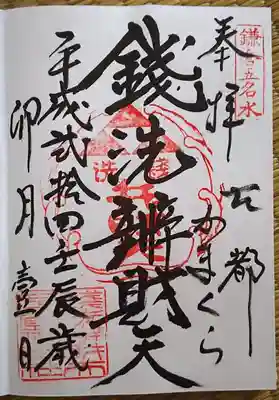 鎌倉五名水
奉拝 古都かまくら
銭洗辨財天
平成弐拾四壬辰歳
卯月壹日